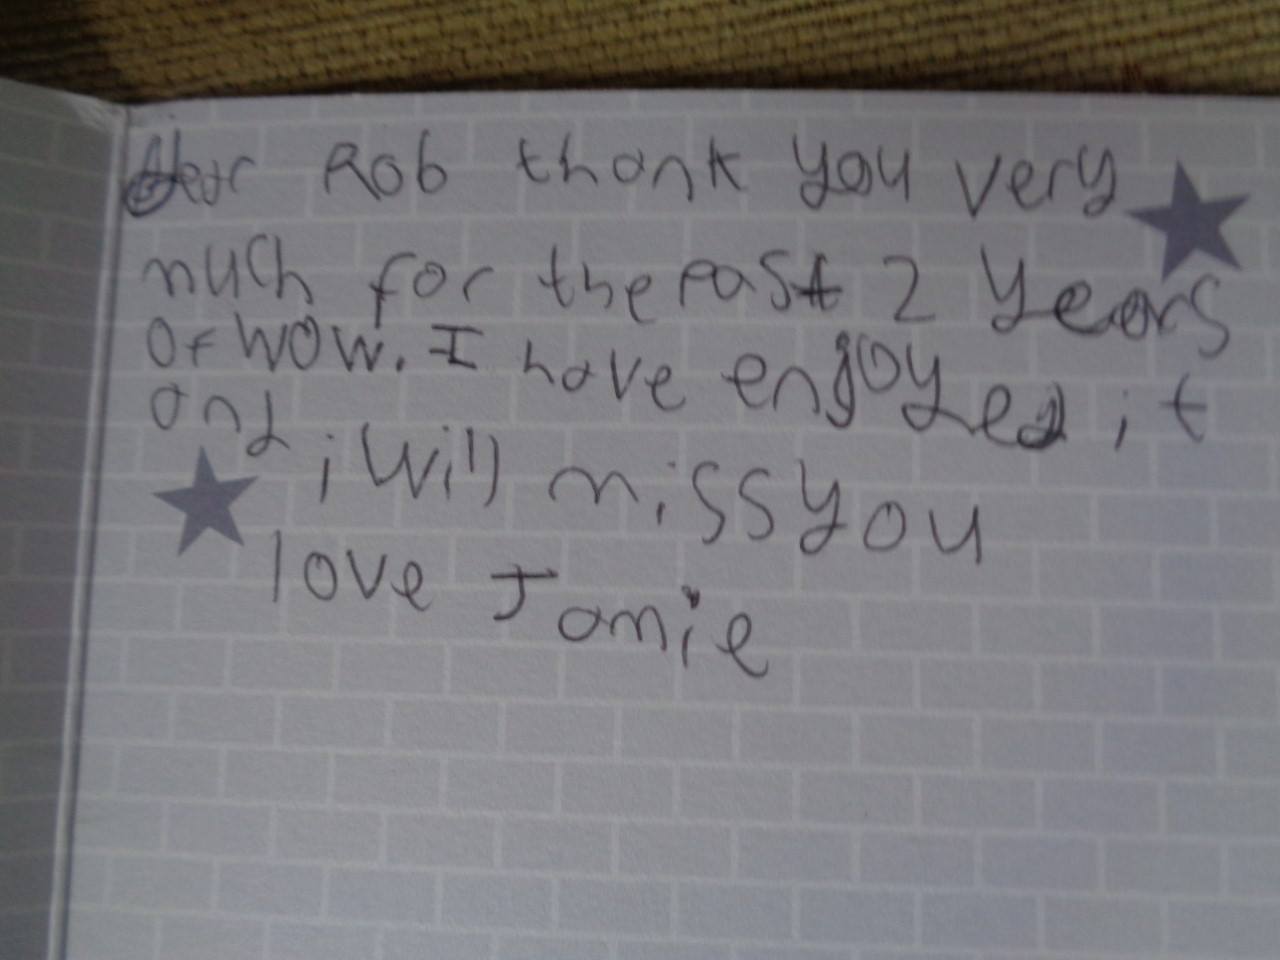 Dear Rob thank you very
much for the past 2 Years
Of WOW. I have engoyed it
and i will miss you
love Jamie